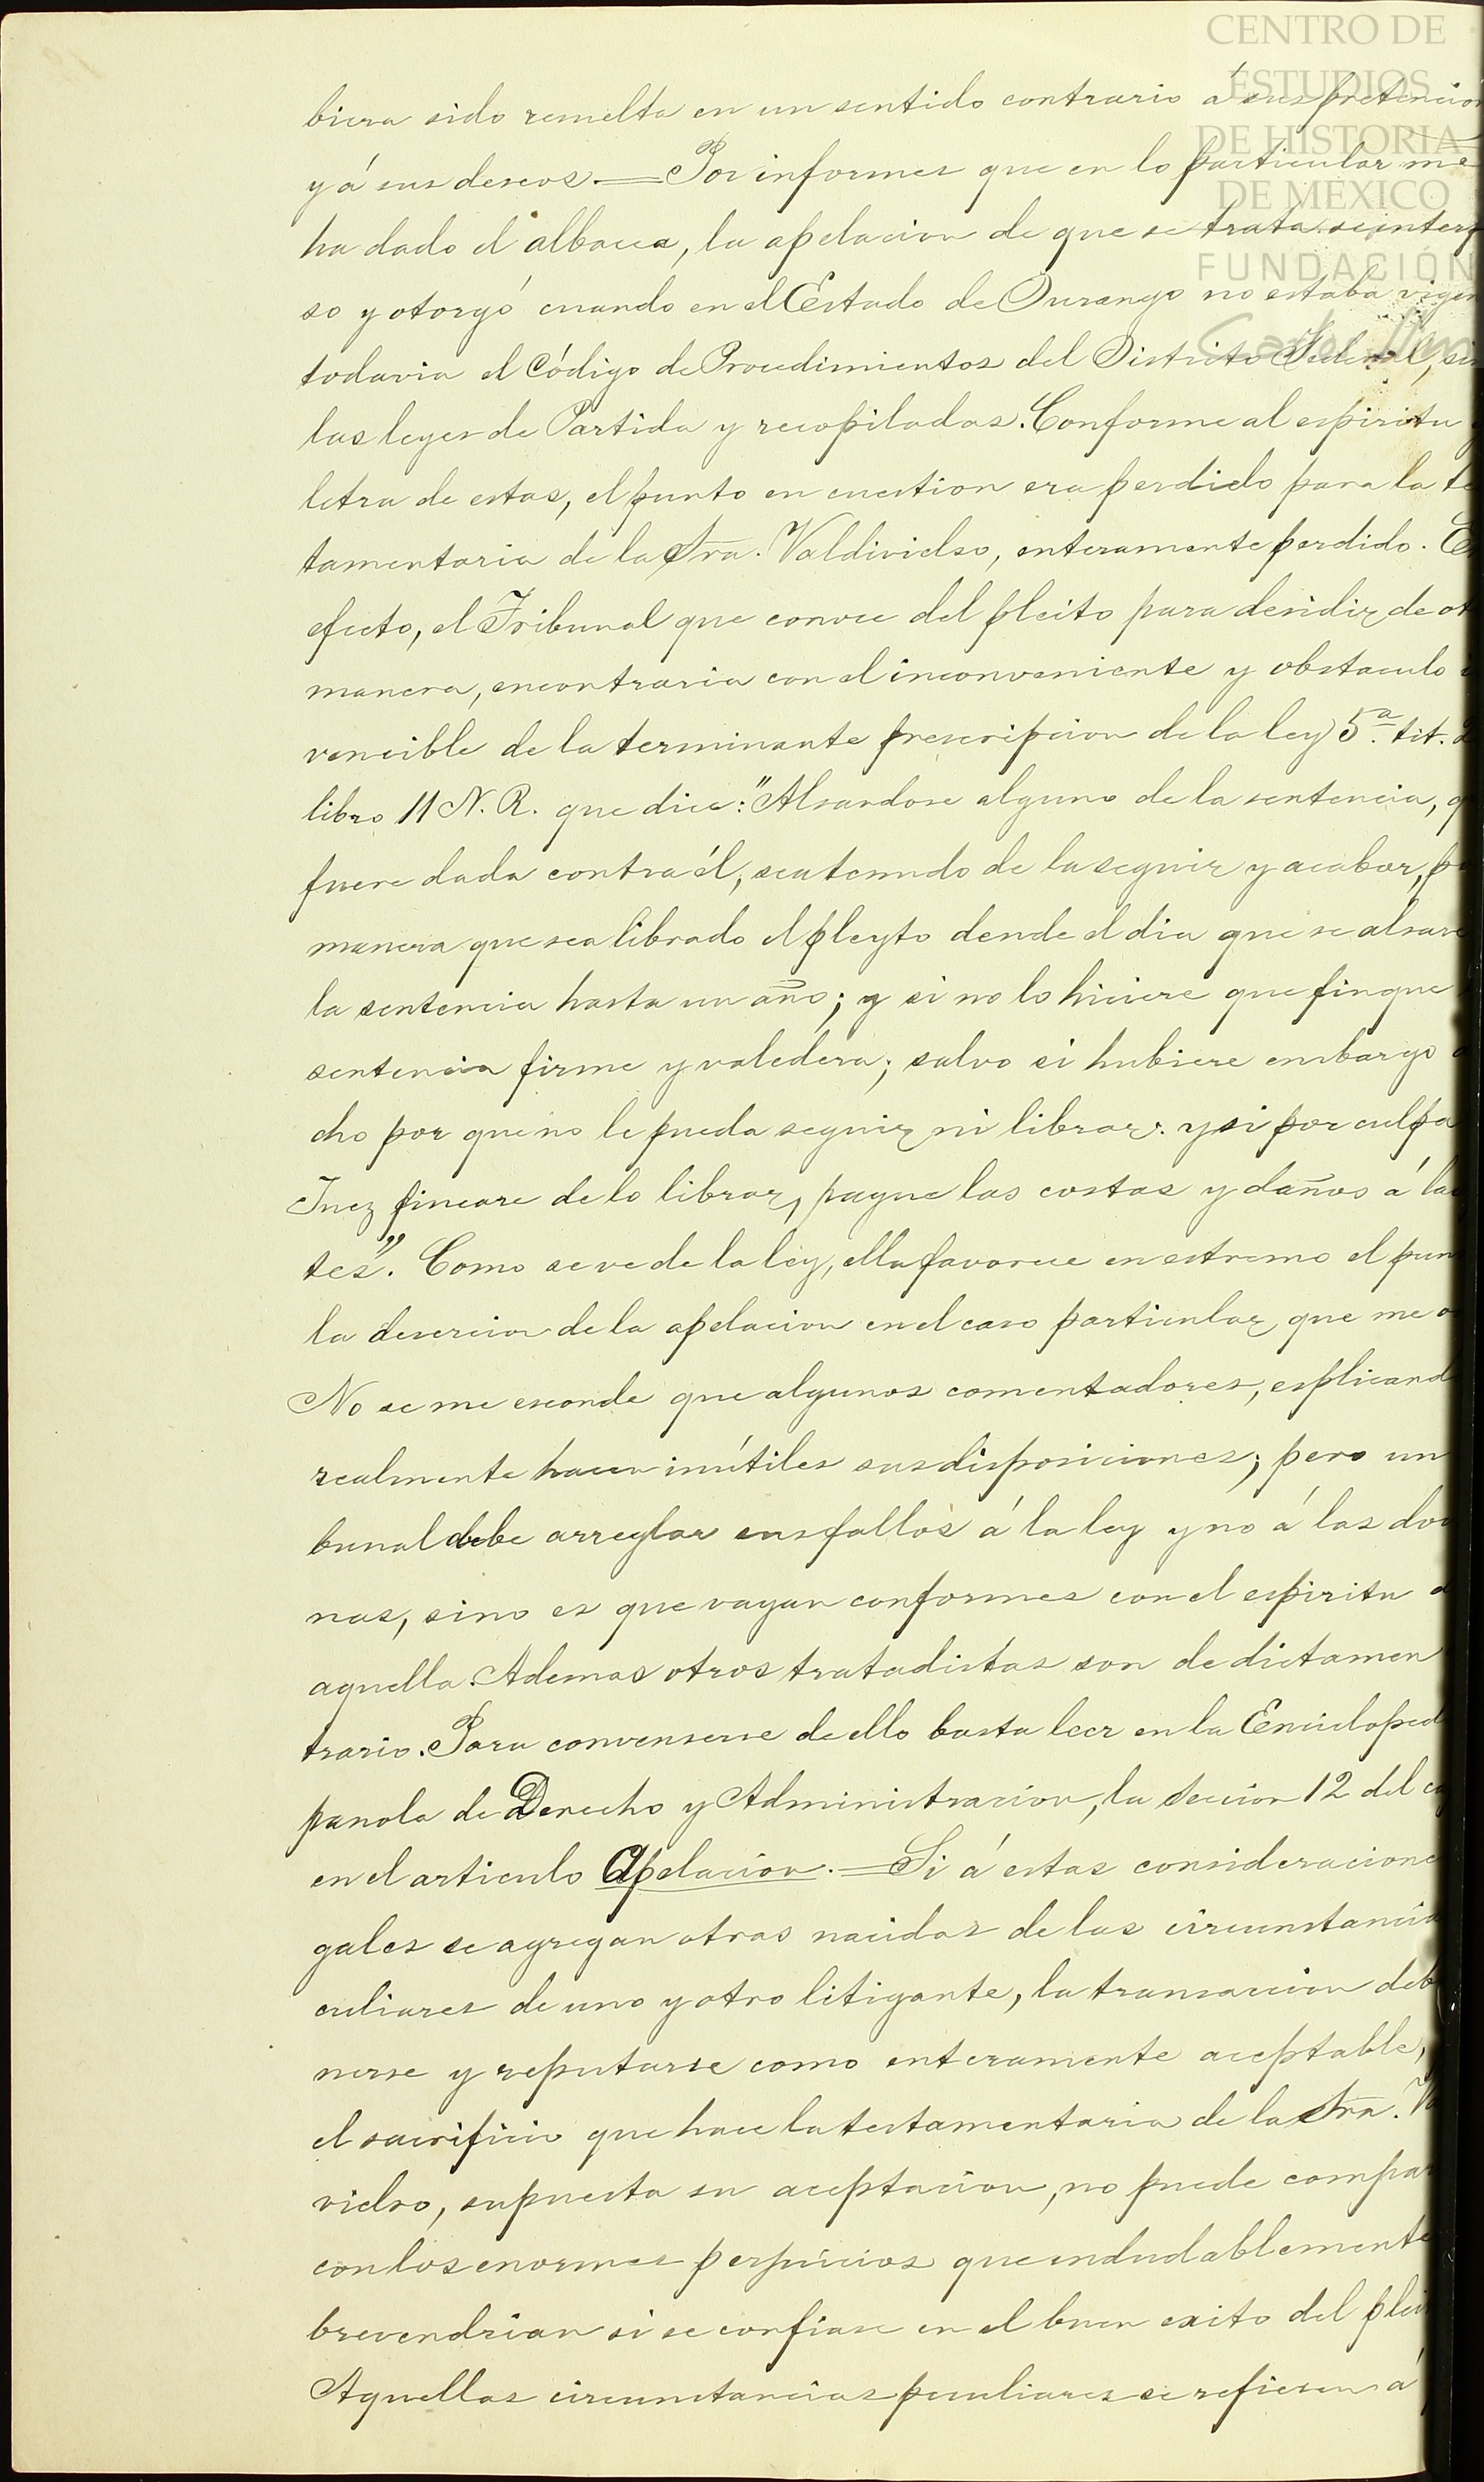 CENTRO DE
ESTUDIOS
DE HISTORIA
DE MÉXICO
FUNDACIÓN
biera sido resuelta en un sentido contrario á sus pretencion
y á sus deseos.—Por informes que en lo particular me
ha dado el albacea, la apelacion de que se trata se interp
so y otorgó cuando en el Estado de Durango no estaba vigen
todavia el Código de Procedimientos del Distrito Federal, sin
las leyes de Partida y recopiladas. Conforme al espiritu
letra de estas, el punto en cuestion era perdido para la te
tamentaria de la Sra. Valdivielso, enteramente perdido. E
efecto, el Tribunal que conoce del pleito para desidir de ot
manera, encontraria con el inconveniente y obstaculo i
vencible de la terminante prescripcion de la ley 5.ª tit. 2
libro 11 N. R. que dice: "Alsandose alguno de la sentencia, q
fuere dada contra él, sea tenudo de la seguir y acabar, p
manera que sea librado el pleyto dende el dia que se alsare
la sentencia hasta un año; y si no lo hiciere que finque
sentencia firme y valedera; salvo si hubiere embargo d
cho por que no le pueda seguir ni librar: y si por culpa
Juez fincare de lo librar, pague las costas y daños á la
tes". Como se ve de la ley, ella favorece en estremo el pun
la desercion de la apelacion en el caso particular que me o
No se me esconde que algunos comentadores, esplicand
realmente hacen inútiles sus disposiciones; pero un
bunal debe arreglar sus fallos á la ley y no á las doc
nas, sino es que vayan conformes con el espiritu d
aquella. Ademas otros tratadistas son de dictamen
trario. Para convenserse de ello basta leer en la Encicloped
panola de Derecho y Administracion, la seccion 12 del ca
en el articulo Apelacion.—Si á estas consideracione
gales se agregan otras nacidas de las circunstancia
culiares de uno y otro litigante, la transaccion deb
nerse y reputarse como enteramente aceptable,
el sacrificio que hace la testamentaria de la Sra. Va
vielso, supuesta su aceptacion, no puede compar
con los enormes perjuicios que indudablemente
brevendrian si se confiase en el buen exito del plei
Aquellas circunstancias peculiares se refieren á